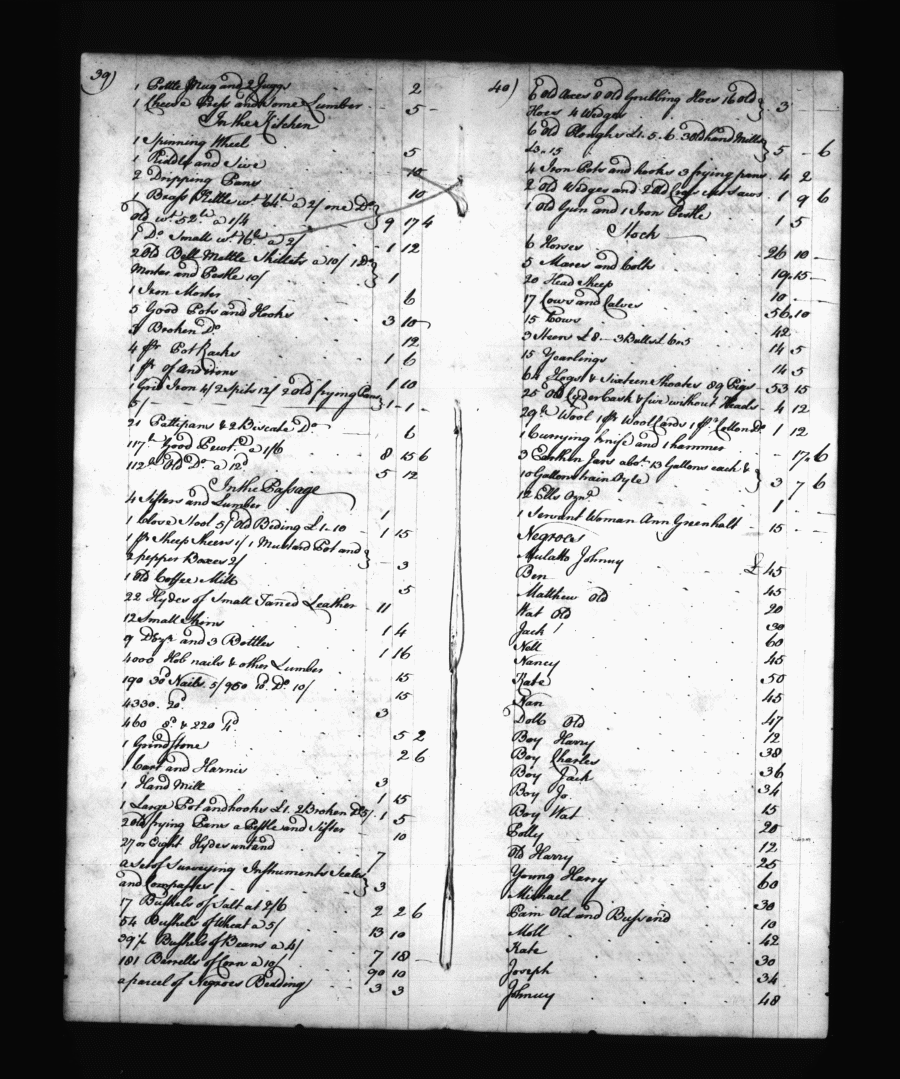 39)
1 Pottle Mug and 2 Juggs 2
1 Cheese Press and Some Lumber 5 -
In the Kitchen
1 Spinning Wheel 5
1 Riddle and Sive 10
2 Dripping Pans 10
1 Brass Kettle wt. 64lb a 2/ one Do
Old wt. 52lb a 1/4 9 17 4
1 Do Small wt. 16lb a 2/ 1 12
2 Old Bell Mettle Skillets a 10/ 1 Do
Morter and Pestle 10/ 1
1 Iron Morter 6
5 Good Pots and Hooks 3 10
3 Broken Do 12
4 pr Pot Racks 1 6
1 pr of Andirons 1 10
1 Grid Iron 4/ 2 Spits 12/ 2 old frying Pans
5/ 1 - 1 -
21 Pattipans & 2 Biscake Do 6
117lb Good Pewtr. a 1/6 8 15 6
112lb Old Do a 12d 5 12
In the Passage
4 Sifters and Lumber 1
1 Close Stool 5/ Old Beding £1..10 1 15
1 pr Sheep Sheers 1/ 1 Mustard Pot and
2 pepper Boxes 2/ 3
1 Old Coffee Mill 5
22 Hydes of Small Taned Leather 11
12 Small Skins 1 4
9 Dozn and 3 Bottles 1 16
4000 Hob nails & other Lumber 15
190 30d Nails 5/ 960 10d Do 10/ 15
4330 20d 3
460 8d & 220 4d 5 2
1 Grindstone 2 6
1 Cart and Harnis 3
1 Hand Mill 1 15
1 Large Pot and hooks £1. 2 Broken Do 5/ 1 5
2 old frying Pans a Pestle and Sifter 10
27 or Eight Hydes untand 7
a set of Surveying Instruments Scales
and Compasses 3
17 Bushels of Salt at 2/6 2 2 6
54 Bushels of Wheat a 5/ 13 10
39½ Bushels of Beans a 4/ 7 18
181 Barrells of Corn a 10/ 90 10
a parcel of Negroes Bedding 3 3
40)
6 Old Axes 8 Old Grubbing Hoes 16 old
Hoes 4 Wedges 3 -
6 Old Ploughs £1. 5. 6 3 old hand Mills
£3..15 5 - 6
4 Iron Pots and hooks 3 frying pans 4 2
2 Old Wedges and 2 Old Cross cut saws 1 9 6
1 Old Gun and 1 Iron Pestle 1 5
Stock
6 Horses 26 10 -
5 Mares and Colts 19.15 -
20 Head Sheep 10 -
17 Cows and Calves 56.10
15 Cows 42
3 Steers £8 - 3 Bulls £6..5 14 5
15 Yearlings 14 5
64 Hogs & Sixteen Shoates 89 Pigs 53 15
25 Old Cyder Cask & five without Heads 4 12
29lb Wool 1 pr Wool Cards 1 pr Cotton Do 1 12
1 Currying knife and 1 hammer - 17.6
3 Earthen Jars abot. 13 Gallons each &
10 Gallons train Oyle 3 7 6
12 Ells Ozns 1 -
1 Servant Woman Ann Greenhalt 15 -
Negroes
Mulatto Johnny £45
Ben 45
Matthew Old 20
Wat Old 30
Jack 60
Nell 45
Nancy 50
Kate 45
Nan 47
Doll Old 12
Boy Harry 38
Boy Charles 36
Boy Jack 34
Boy Jo. 15
Boy Wat 20
Polly 12
Old Harry 25
Young Harry 60
Michael 30
Pam Old and 10
Moll 42
Kate 30
Joseph 34
Johnny 48